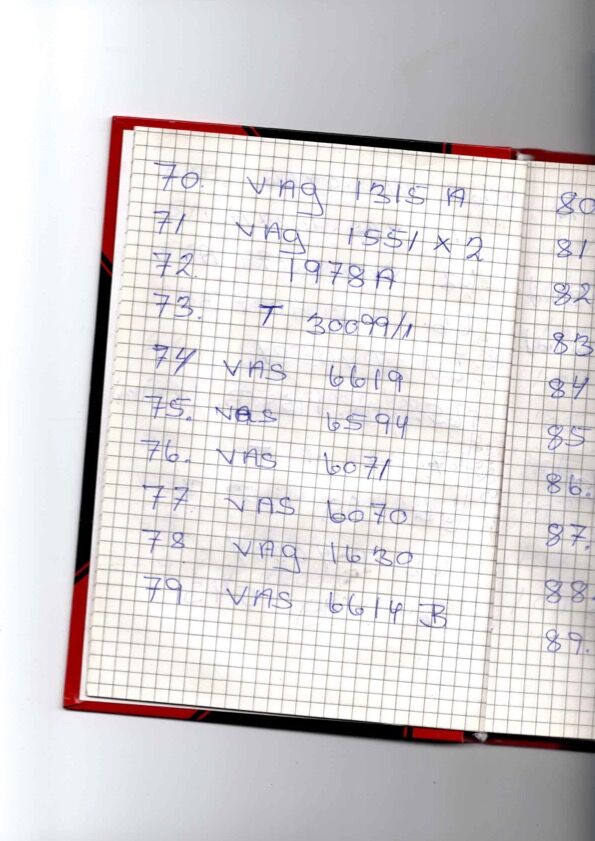 70. VAg 1315 A
71 VAg 1551 x 2
72. T978A
73. T 30099/1
74 VAS 6619
75. vas 6594
76. VAS 6071
77 VAS 6070
78 VAg 1630
79 VAS 6614 B
80
81
82
83
84
85
86.
87.
88.
89.